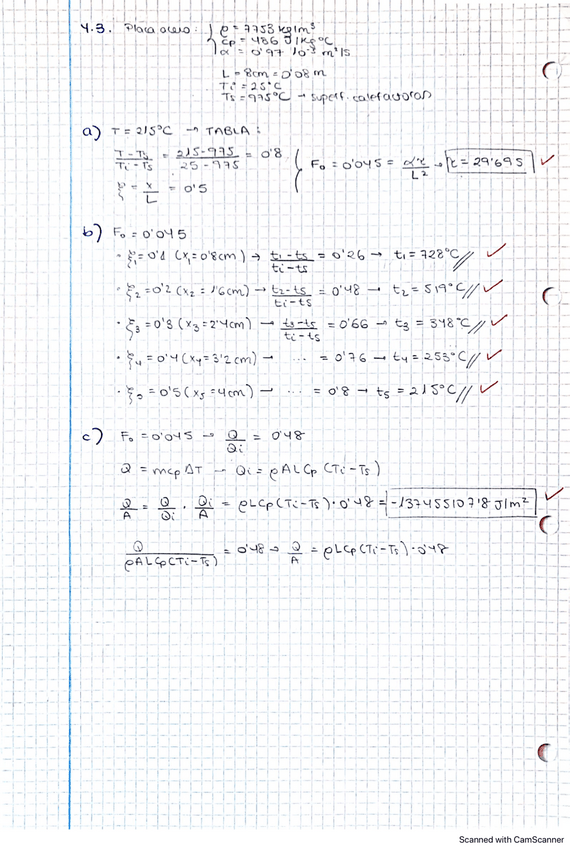 4.3. Placa acero: { ρ = 7753 kg/m³
cp = 486 J/kg°C
α = 0'97 10⁻⁵ m²/s
L = 8cm = 0'08 m
Ti = 25°C
Ts = 975°C → superf. calefactoras
a) T = 215°C → TABLA:
T-Ts/Ti-Ts = 215-975/25-975 = 0'8 { Fo = 0'045 = α·τ/L² → τ = 29'69 s
ξ = x/L = 0'5
b) Fo = 0'045
· ξ₁ = 0'1 (x₁ = 0'8cm) → t₁-ts/ti-ts = 0'26 → t₁ = 728°C //
· ξ₂ = 0'2 (x₂ = 1'6cm) → t₂-ts/ti-ts = 0'48 → t₂ = 519°C //
· ξ₃ = 0'3 (x₃ = 2'4cm) → t₃-ts/ti-ts = 0'66 → t₃ = 348°C //
· ξ₄ = 0'4 (x₄ = 3'2cm) → ... = 0'76 → t₄ = 253°C //
· ξ₅ = 0'5 (x₅ = 4cm) → ... = 0'8 → t₅ = 215°C //
c) Fo = 0'045 → Q/Qi = 0'48
Q = mcpΔT → Qi = ρALCp(Ti-Ts)
Q/A = Q/Qi · Qi/A = ρLCp(Ti-Ts)·0'48 = -137455107'8 J/m²
Q/ρALCp(Ti-Ts) = 0'48 → Q/A = ρLCp(Ti-Ts)·0'48
Scanned with CamScanner